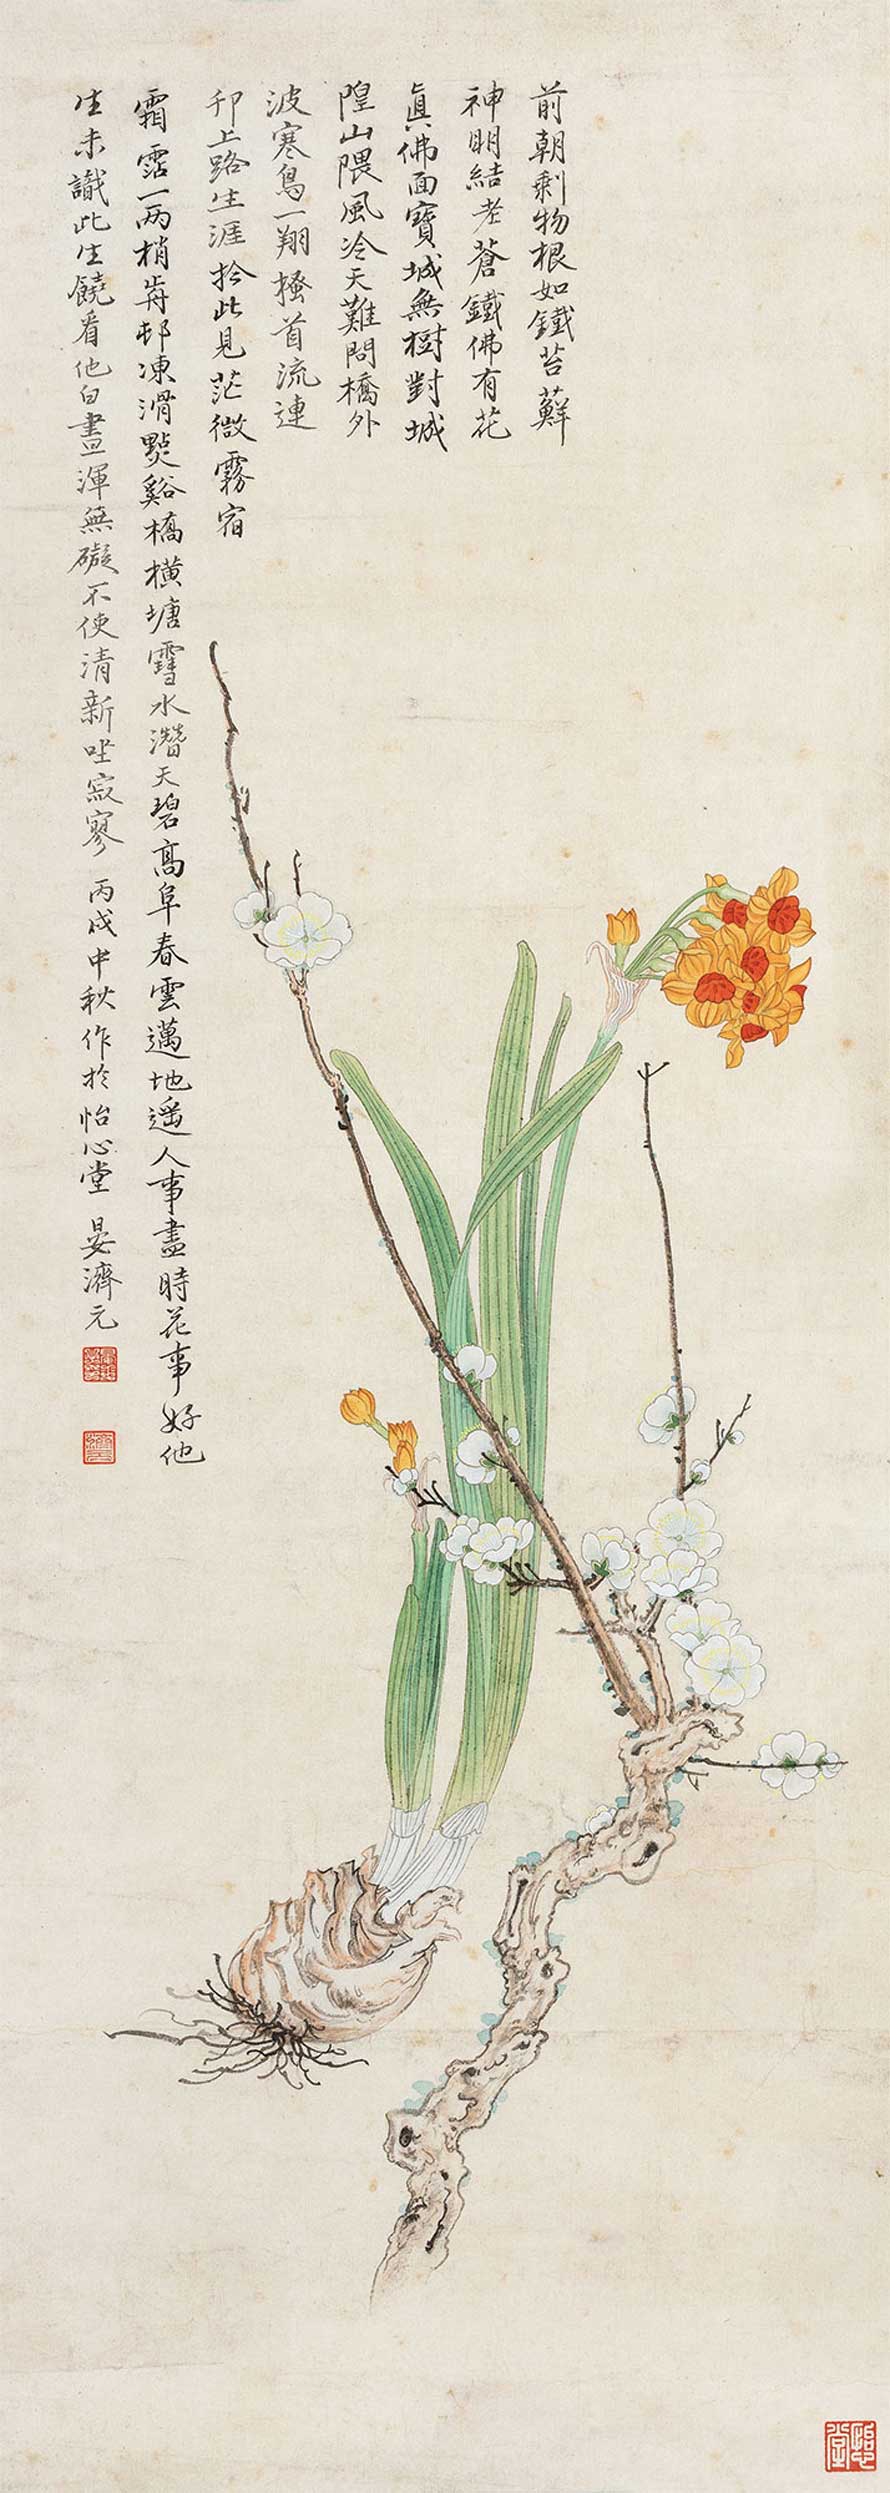 前朝剩物根如鐵苔蘚
神明結老蒼鐵佛有花
眞佛面寶城無樹對城
隍山隈風冷天難問橋外
波寒鳥一翔搔首流連
邗上路生涯拾此見茫微霧宿
霜霑一兩梢耑邨凍滑點谿橋橫塘雪水潛天碧高阜春雲邁地遥人事盡時花事好他
生未識此生饒看他白晝渾無礙不使清新㘴寂寥 丙戌中秋作於怡心堂 晏濟元
怡心堂